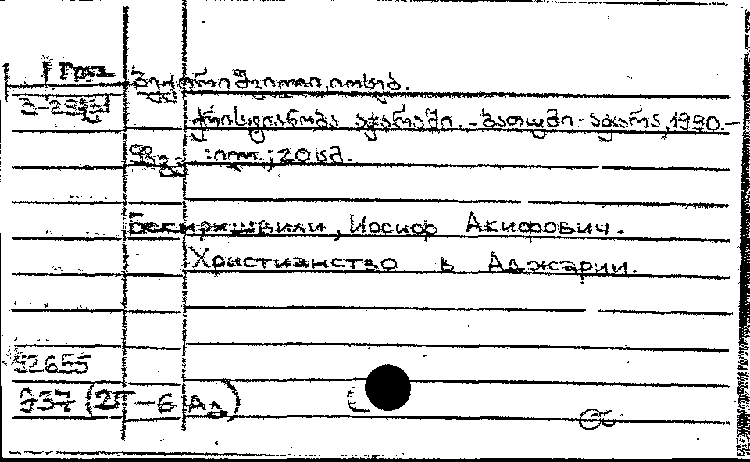 Груз
ბექირიშვილი, იოსებ.
ქრისტიანობა აჭარაში. - ბათუმი: აჭარა, 1990. -
: ილ.; 20 სმ.
Бекиришвили, Иосиф Акифович.
Христианство в Аджарии.
92655
Э37 (2Г-6 Ад)